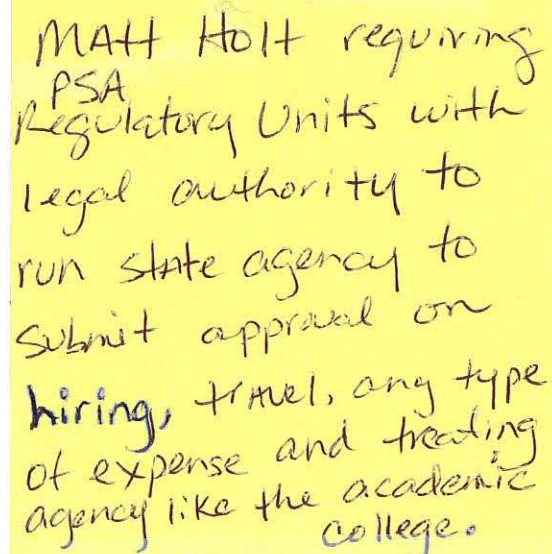 MATT HOLT requiring
PSA
Regulatory Units with
legal authority to
run state agency to
submit approval on
hiring, travel, any type
of expense and treating
agency like the academic
college.